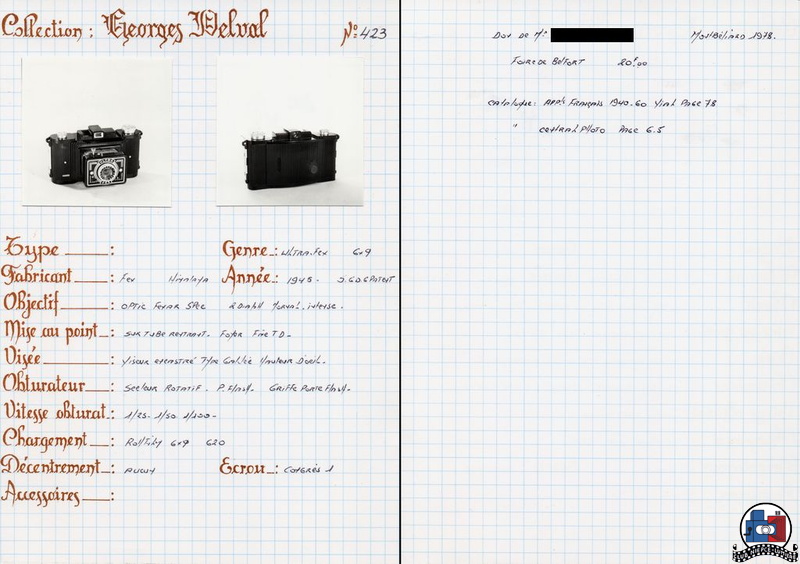 Collection : Georges Delval N°: 423
Type :
Genre : ULTRA.FEX 6x9
Fabricant : FEX Himalaya
Année : 1945. S.G.D.G PATENT
Objectif : OPTIC FEXAR SPEC 2 DIAPH NORMAL. intense.
Mise au point : SUR TUBE RENTRANT. FOYER FIXE TD_
Visée : Viseur encastré Type Galilée Hauteur D'oeil_
Obturateur : SECTEUR ROTATIF. P.Flash_ GRIFFE PORTE Flash_
Vitesse obturat. : 1/25. 1/50 1/100_
Chargement : Rollfilm 6x9 620
Décentrement : AUCUN
Ecrou : CONGRÈS 1
Accessoires :
DON DE Mr Montbéliard 1978.
Foire de BELFORT 20F.00
Catalogue: APP's Français 1940.60 Vial PAGE 78
" CENTRAL PHOTO PAGE 6.5